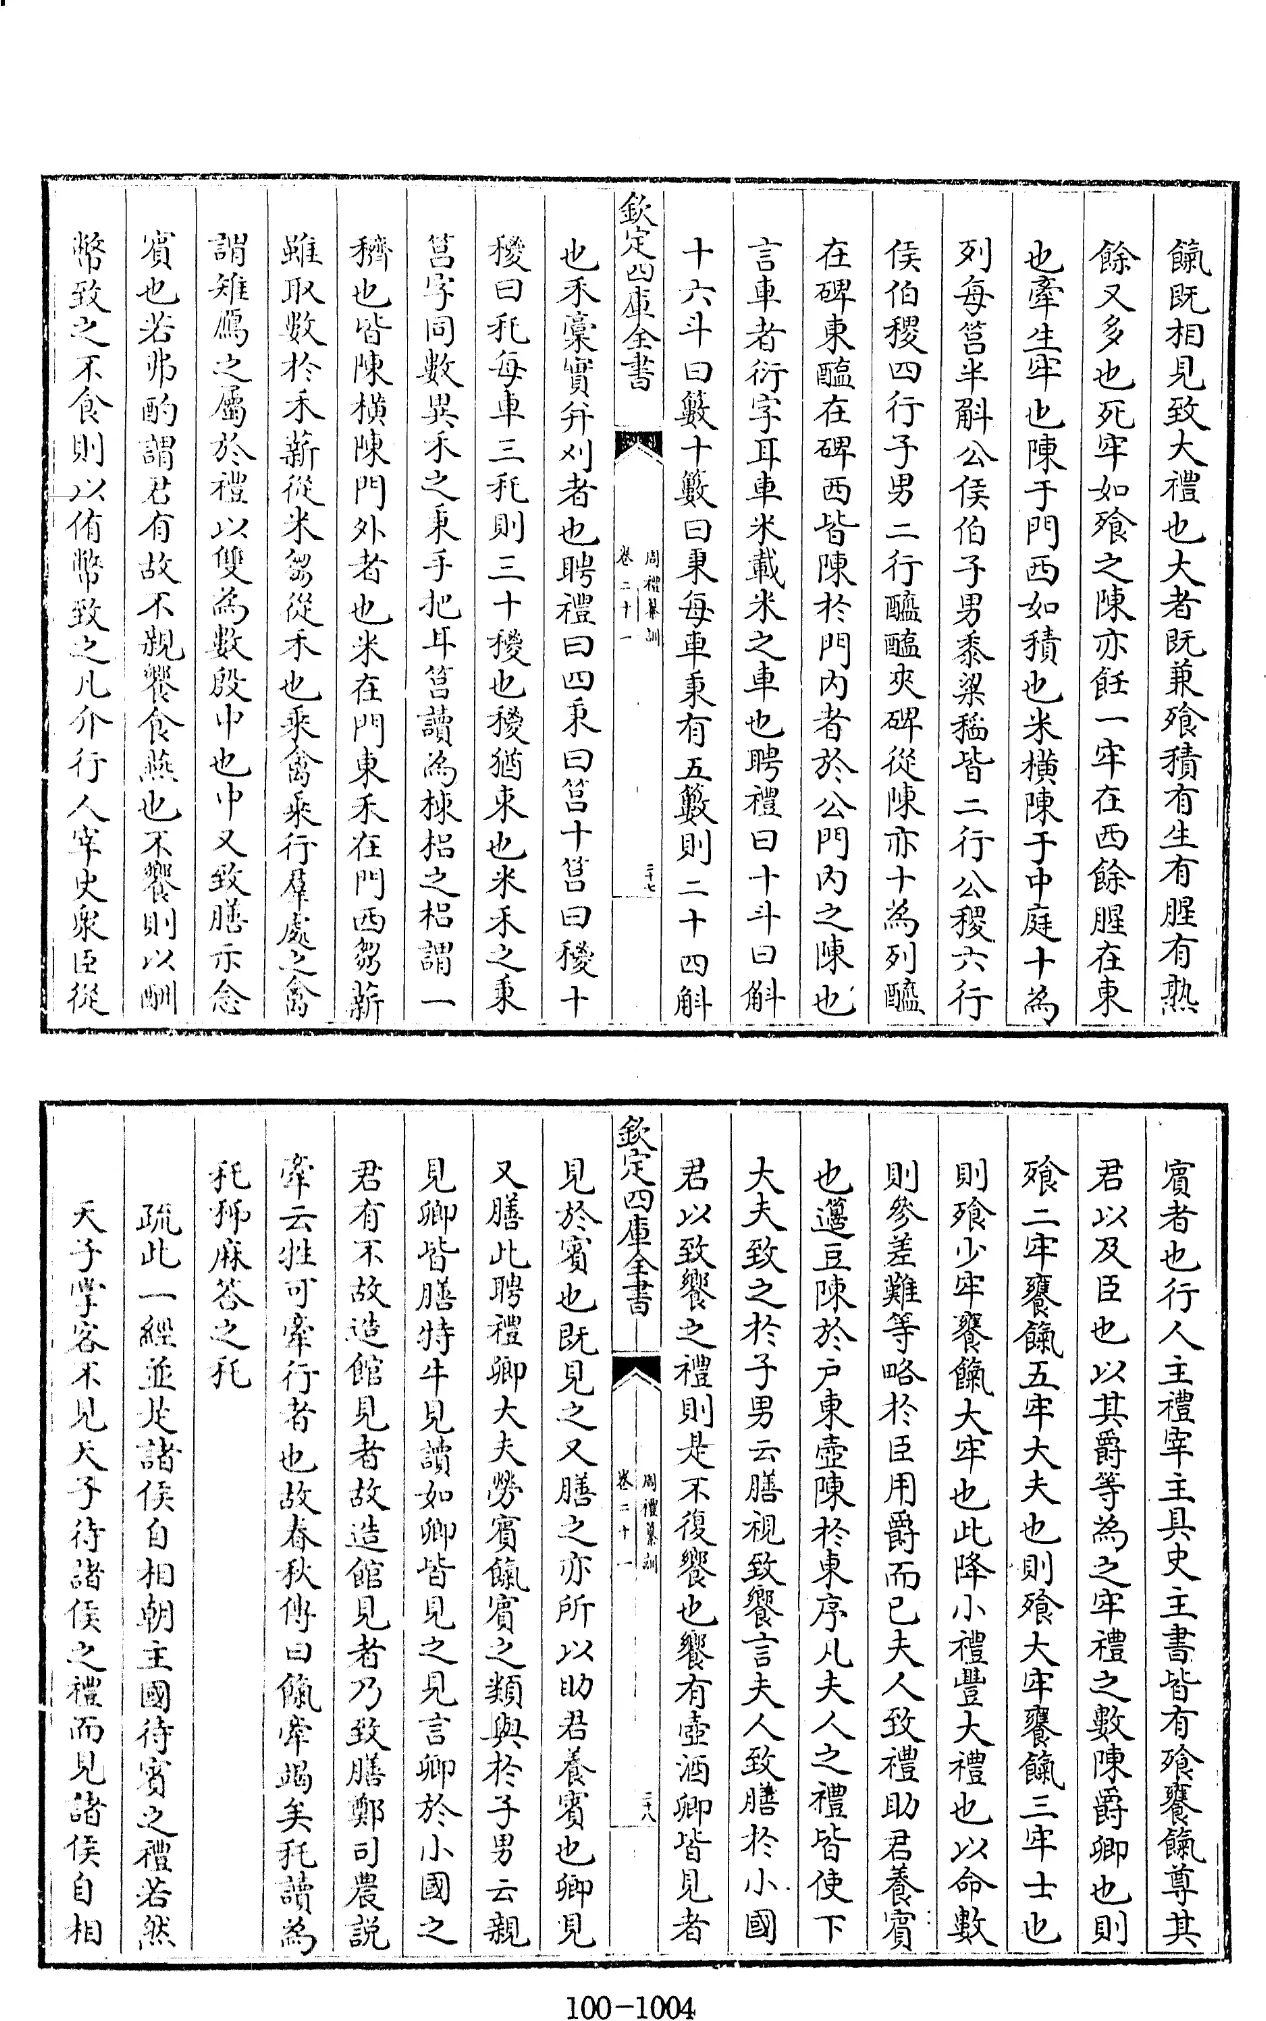 餼既相見致大禮也大者既兼飱積有生有腥有熟
餘又多也死牢如飱之陳亦飪一牢在西餘腥在東
也牽生牢也陳于門西如積也米橫陳于中庭十為
列每筥半斛公侯伯子男黍粱稻皆二行公稷六行
侯伯稷四行子男二行醯醢夾碑從陳亦十為列醢
在碑東醯在碑西皆陳於門內者於公門內之陳也
言車者衍字耳車米載米之車也聘禮曰十斗曰斛
十六斗曰籔十籔曰秉每車秉有五籔則二十四斛
欽定四庫全書
周禮纂訓
卷二十一
三十七
也禾稾實并刈者也聘禮曰四秉曰筥十筥曰稯十
稯曰秅每車三秅則三十稯也稯猶束也米禾之秉
筥字同數異禾之秉手把耳筥讀為棟梠之梠謂一
穧也皆陳橫陳門外者也米在門東禾在門西芻薪
雖取數於禾薪從米芻從禾也乘禽乘行羣處之禽
謂雉鴈之屬於禮以雙為數殷中也中又致膳示念
賓也若弗酌謂君有故不親饗食燕也不饗則以酬
幣致之不食則以侑幣致之凡介行人宰史衆臣從
賓者也行人主禮宰主具史主書皆有飱饔餼尊其
君以及臣也以其爵等為之牢禮之數陳爵卿也則
飱二牢饔餼五牢大夫也則飱大牢饔餼三牢士也
則飱少牢饔餼大牢也此降小禮豐大禮也以命數
則參差難等略於臣用爵而已夫人致禮助君養賓
也籩豆陳於戶東壺陳於東序凡夫人之禮皆使下
大夫致之於子男云膳視致饗言夫人致膳於小國
君以致饗之禮則是不復饗也饗有壺酒卿皆見者
欽定四庫全書
周禮纂訓
卷二十一
三十八
見於賓也既見之又膳之亦所以助君養賓也卿見
又膳此聘禮卿大夫勞賓餼賓之類與於子男云親
見卿皆膳特牛見讀如卿皆見之見言卿於小國之
君有不故造館見者故造館見者乃致膳鄭司農說
牽云牲可牽行者也故春秋傳曰餼牽竭矣秅讀為
秅秭麻荅之秅
疏此一經並是諸侯自相朝主國待賓之禮若然
天子掌客不見天子待諸侯之禮而見諸侯自相
100-1004